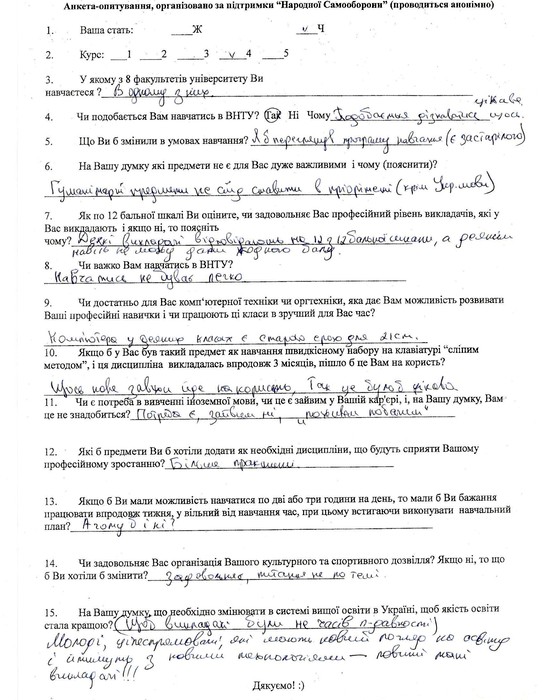 Анкета-опитування, організовано за підтримки “Народної Самооборони” (проводиться анонімно)
1. Ваша стать: ____Ж __v_Ч
2. Курс: ___1 ___2 ___3 _v_4 ____5
3. У якому з 8 факультетів університету Ви
навчаєтеся ? В одному з них
4. Чи подобається Вам навчатись в ВНТУ? Так Ні Чому Подобається дізнаватися щось цікаве
5. Що Ви б змінили в умовах навчання? Я б переглянув програму навчання (є застарілою)
6. На Вашу думку які предмети не є для Вас дуже важливими і чому (пояснити)?
Гуманітарні предмети не слід ставити в пріоритети (крім Укр.мови)
7. Як по 12 бальної шкалі Ви оціните, чи задовольняє Вас професійний рівень викладачів, які у
Вас викладають і якщо ні, то поясніть
чому? Деякі викладачі відповідають на 12 з 12 бальної шкали, а деяким
навіть не можу дати жодного балу.
8. Чи важко Вам навчатись в ВНТУ?
Навчатися не буває легко
9. Чи достатньо для Вас комп‘ютерної техніки чи оргтехніки, яка дає Вам можливість розвивати
Ваші професійні навички і чи працюють ці класи в зручний для Вас час?
Комп'ютери у деяких класах є старою для 21 ст.
10. Якщо б у Вас був такий предмет як навчання швидкісному набору на клавіатурі “сліпим
методом”, і ця дисципліна викладалась впродовж 3 місяців, пішло б це Вам на користь?
Щось нове завжди йде на користь, Так це було б цікаво
11. Чи є потреба в вивченні іноземної мови, чи це є зайвим у Вашій кар'єрі, і, на Вашу думку, Вам
це не знадобиться? Потреба є, зайвим ні, "поживем побачим"
12. Які б предмети Ви б хотіли додати як необхідні дисципліни, що будуть сприяти Вашому
професійному зростанню? Більше практики
13. Якщо б Ви мали можливість навчатися по дві або три години на день, то мали б Ви бажання
працювати впродовж тижня, у вільний від навчання час, при цьому встигаючи виконувати навчальний
план? А чому б і ні?
14. Чи задовольняє Вас організація Вашого культурного та спортивного дозвілля? Якщо ні, то що
б Ви хотіли б змінити? Задовольняє, питання не по темі
15. На Вашу думку, що необхідно змінювати в системі вищої освіти в Україні, щоб якість освіти
стала кращою? (Щоб викладачі були не часів п-давності)
Молоді, цілеспрямовані, які мають новий погляд на освіту
і йтимуть з новими технологіями – повинні мати
викладачі!!!
Дякуємо! :)